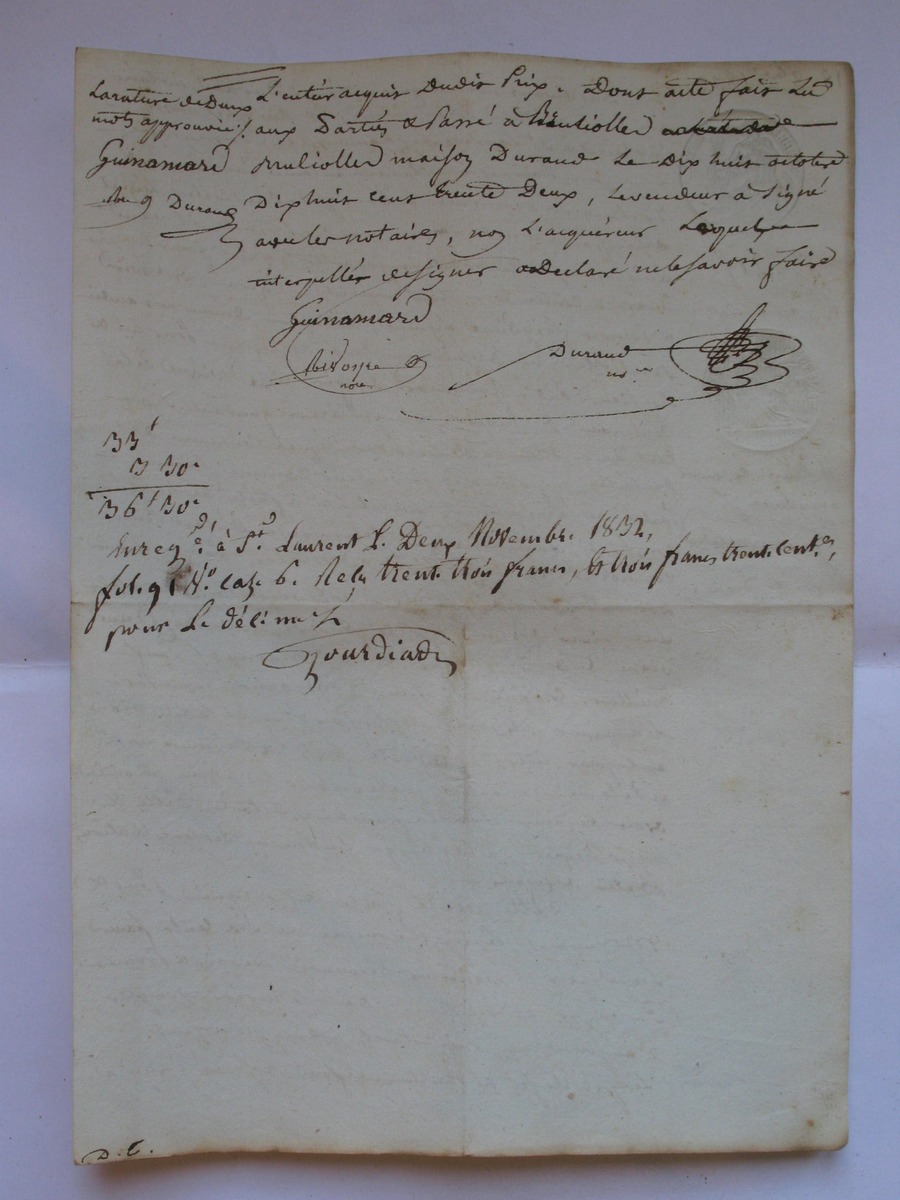 La rature de Deux
mots approuvée /.
Guinamard
Durand
L'entier acquit Dudit Prix. Dont acte fait Lu
aux Parties & Passé à
maison Durand Le Dix huit octobre
Dix huit cent trente Deux, Le vendeur à Signé
avec les notaires, non L'acquéreur Lequel
interpellés de signer a Declaré ne le Savoir faire
Guinamard
Durand
nre
33f
3 30c
36f 30c
Enregé. à St. Laurent L. Deux Novembre 1832,
fol. 91 No. case 6. Reçu trente trois francs, & trois francs trente centes,
pour Le décime
D. T.